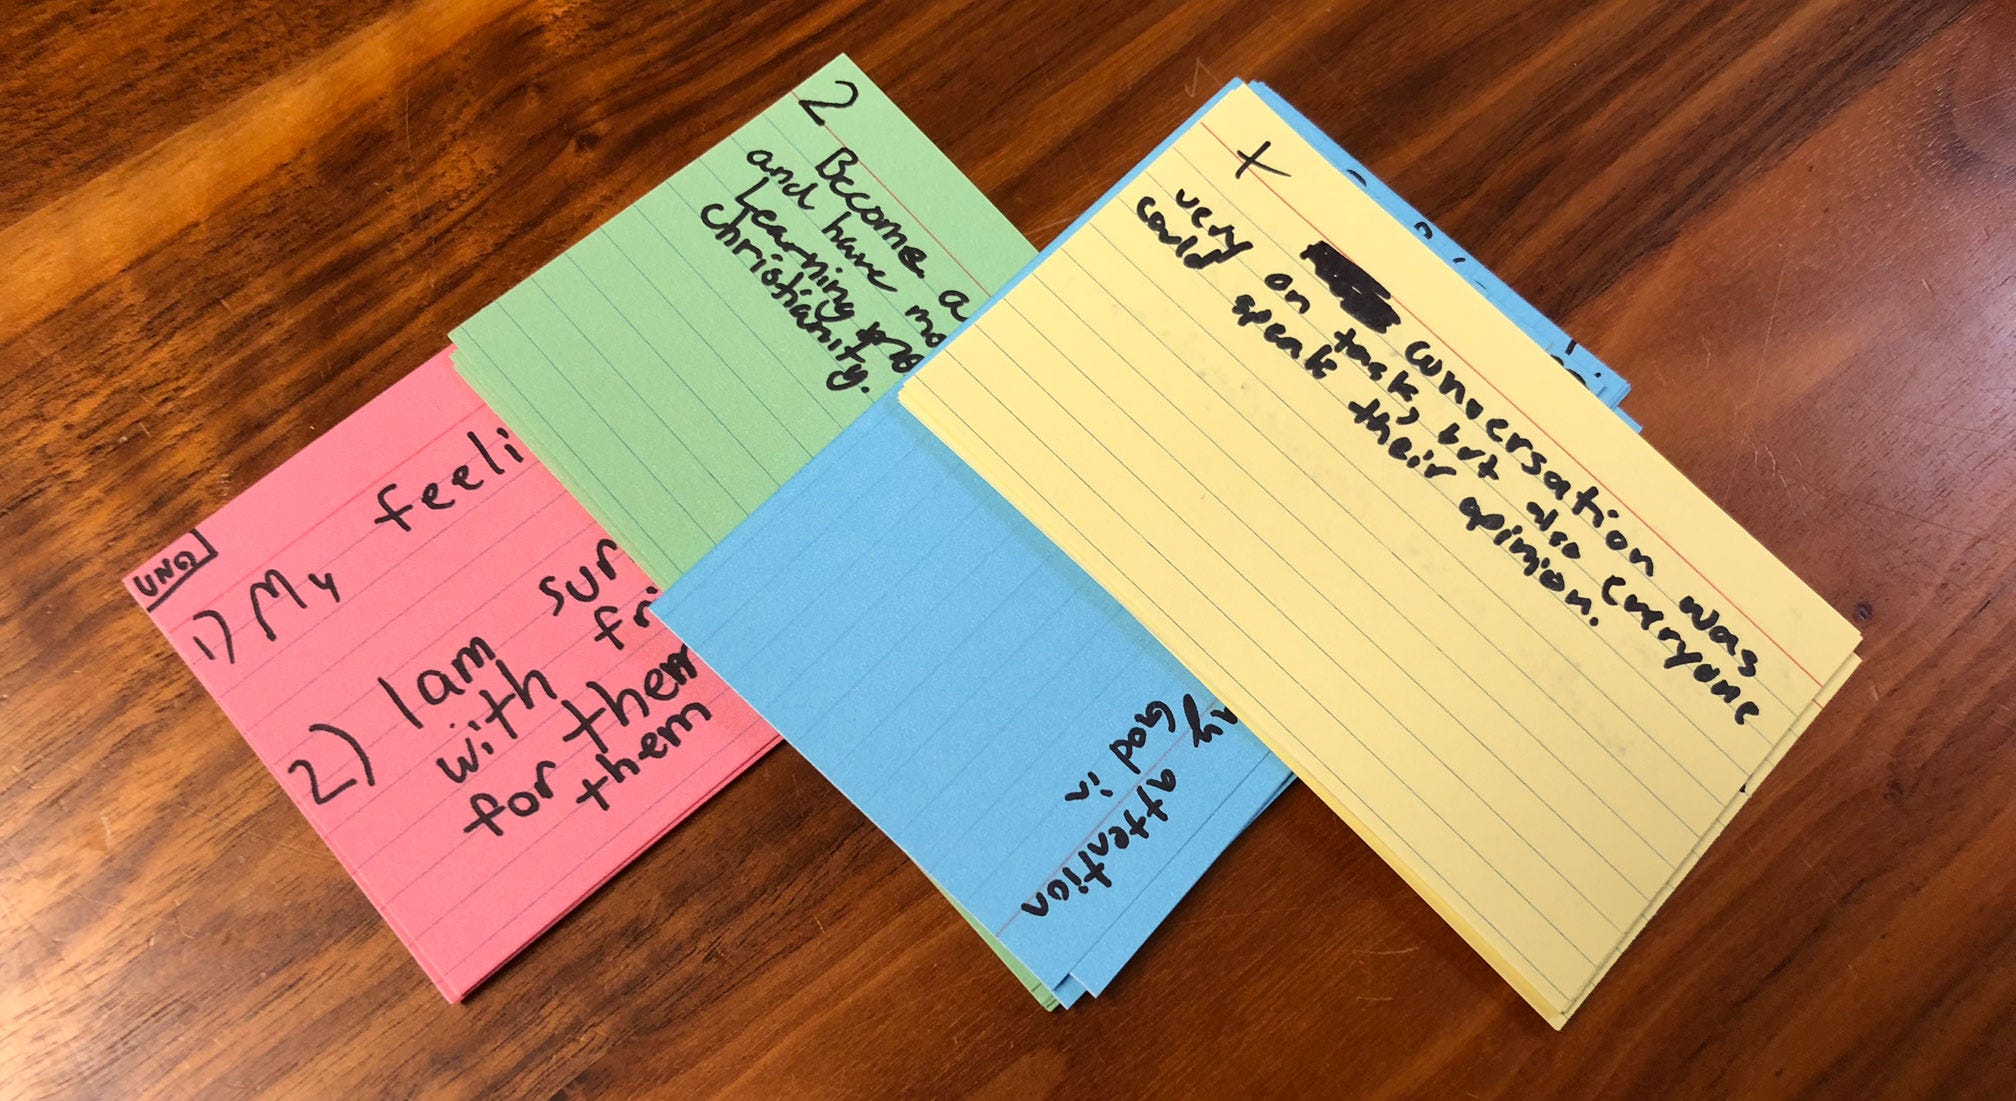 UNQ
1) My feeli
2) I am sur
with fri
for them
them
2
Become a
and have mo
Learning
Christianity.
ay attention
God in
+
conversation was
very on task, but also everyone
could speak their opinion.